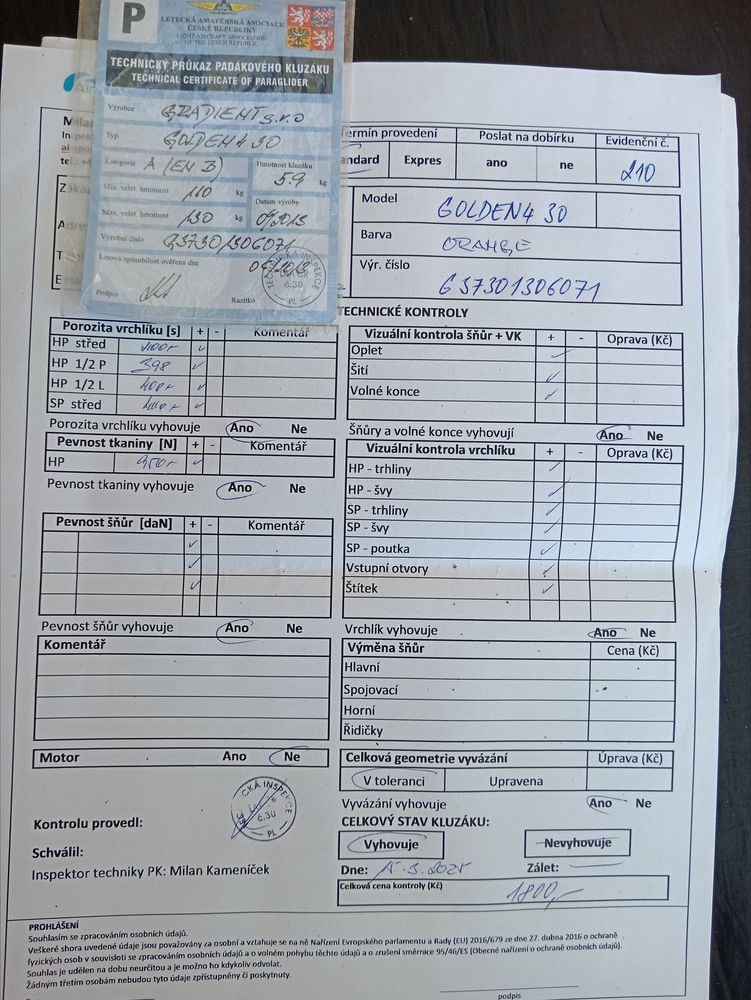 P
LETECKÁ AMATÉRSKÁ ASOCIACE
ČESKÉ REPUBLIKY
LIGHT AIRCRAFT ASSOCIATION
OF THE CZECH REPUBLIC
TECHNICKÝ PRŮKAZ PADÁKOVÉHO KLUZÁKU
TECHNICAL CERTIFICATE OF PARAGLIDER
Výrobce GRADIENT s.r.o
Typ GOLDEN4 30
Kategorie A (EN B)
Hmotnost kluzáku 5.9 kg
Min. vzlet. hmotnost 110 kg
Datum výroby
Max. vzlet. hmotnost 130 kg
Výrobní číslo G3730/306071
Letová způsobilost ověřena dne
Podpis Razítko
Termín provedení Poslat na dobírku Evidenční č.
Expres ano ne 210
Model GOLDEN4 30
Barva ORANGE
Výr. číslo G37301306071
TECHNICKÉ KONTROLY
Porozita vrchlíku [s] + - Komentář
HP střed 400+
HP 1/2 P 398
HP 1/2 L 400+
SP střed 400+
Porozita vrchlíku vyhovuje Ano Ne
Pevnost tkaniny [N] + - Komentář
HP
Pevnost tkaniny vyhovuje Ano Ne
Pevnost šňůr [daN] + - Komentář
Pevnost šňůr vyhovuje Ano Ne
Komentář
Motor Ano Ne
Kontrolu provedl:
Schválil:
Inspektor techniky PK: Milan Kameníček
Vizuální kontrola šňůr + VK + - Oprava (Kč)
Oplet
Šití
Volné konce
Šňůry a volné konce vyhovují Ano Ne
Vizuální kontrola vrchlíku + - Oprava (Kč)
HP - trhliny
HP - švy
SP - trhliny
SP - švy
SP - poutka
Vstupní otvory
Štítek
Vrchlík vyhovuje Ano Ne
Výměna šňůr Cena (Kč)
Hlavní
Spojovací
Horní
Řidičky
Celková geometrie vyvázání Úprava (Kč)
V toleranci Upravena
Vyvázání vyhovuje Ano Ne
CELKOVÝ STAV KLUZÁKU:
Vyhovuje Nevyhovuje
Dne: Zálet:
Celková cena kontroly (Kč) 1800,-
PROHLÁŠENÍ
Souhlasím se zpracováním osobních údajů.
Veškeré shora uvedené údaje jsou považovány za osobní a vztahuje se na ně Nařízení Evropského parlamentu a Rady (EU) 2016/679 ze dne 27. dubna 2016 o ochraně
fyzických osob v souvislosti se zpracováním osobních údajů a o volném pohybu těchto údajů a o zrušení směrnice 95/46/ES (Obecné nařízení o ochraně osobních údajů).
Souhlas je udělen na dobu neurčitou a je možno ho kdykoliv odvolat.
Žádným třetím osobám nebudou tyto údaje zpřístupněny či poskytnuty.
podpis